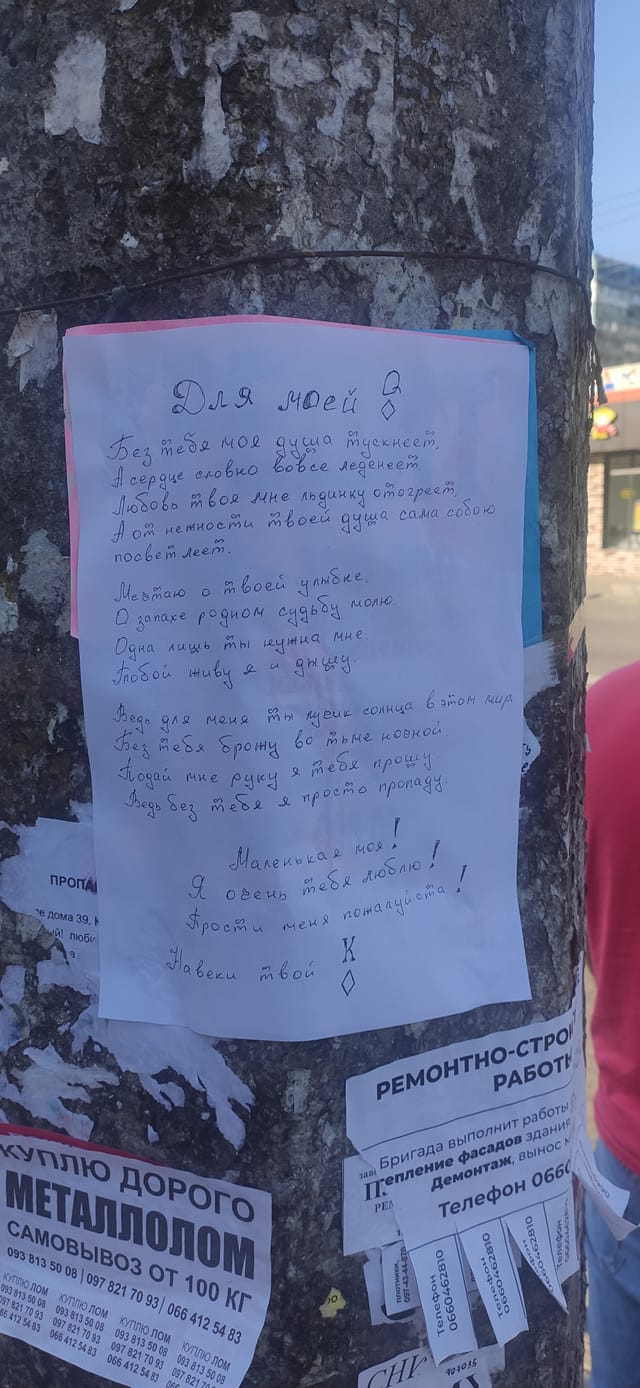 Для моей Q
◊
Без тебя моя душа тускнеет,
А сердце словно вовсе леденеет.
Любовь твоя мне льдинку отогреет,
А от нежности твоей душа сама собою
посветлеет.
Мечтаю о твоей улыбке.
О запахе родном судьбу молю.
Одна лишь ты нужна мне.
Тобой живу я и дышу.
Ведь для меня ты лучик солнца в этом мир
Без тебя брожу во тьме ночной.
Подай мне руку я тебя прошу.
Ведь без тебя я просто пропаду.
Маленькая моя!
Я очень тебя люблю!
Прости меня пожалуйста!
Навеки твой K
◊
ПРОПА
е дома 39, К
ый! люби
РЕМОНТНО-СТРОИ
РАБОТЫ
Бригада выполнит работы
тепление фасадов здания
Демонтаж, вынос м
Телефон 0660
Телефон
0660462810
Телефон
0660462810
Телефон
0660462810
Телефон
КУПЛЮ ДОРОГО
МЕТАЛЛОЛОМ
САМОВЫВОЗ ОТ 100 КГ
093 813 50 08 | 097 821 70 93 | 066 412 54 83
КУПЛЮ ЛОМ
093 813 50 08
097 821 70 93
066 412 54 83
КУПЛЮ ЛОМ
093 813 50 08
097 821 70 93
066 412 54 83
КУПЛЮ ЛОМ
093 813 50 08
097 821 70 93
066 412 54 83
КУПЛЮ ЛОМ
093 813 50 08
097 821 70 93
066 412 54 83
СНИ